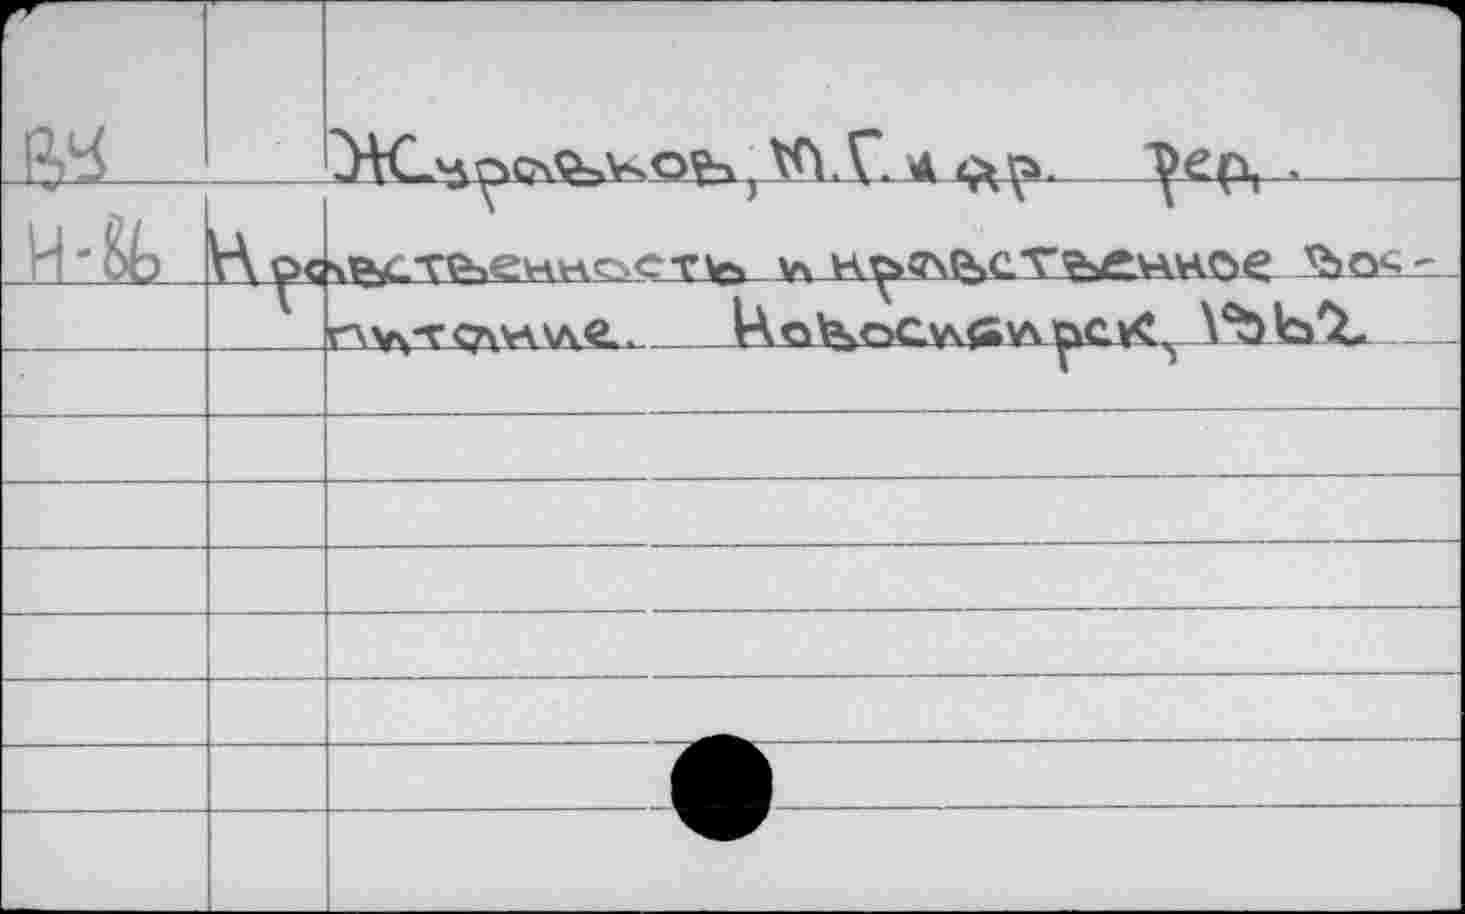 ВЧ Журавков, М.Г. и др. Ред.
Н-86 Нравственность и нравственное вос-
питание. Новосибирск,